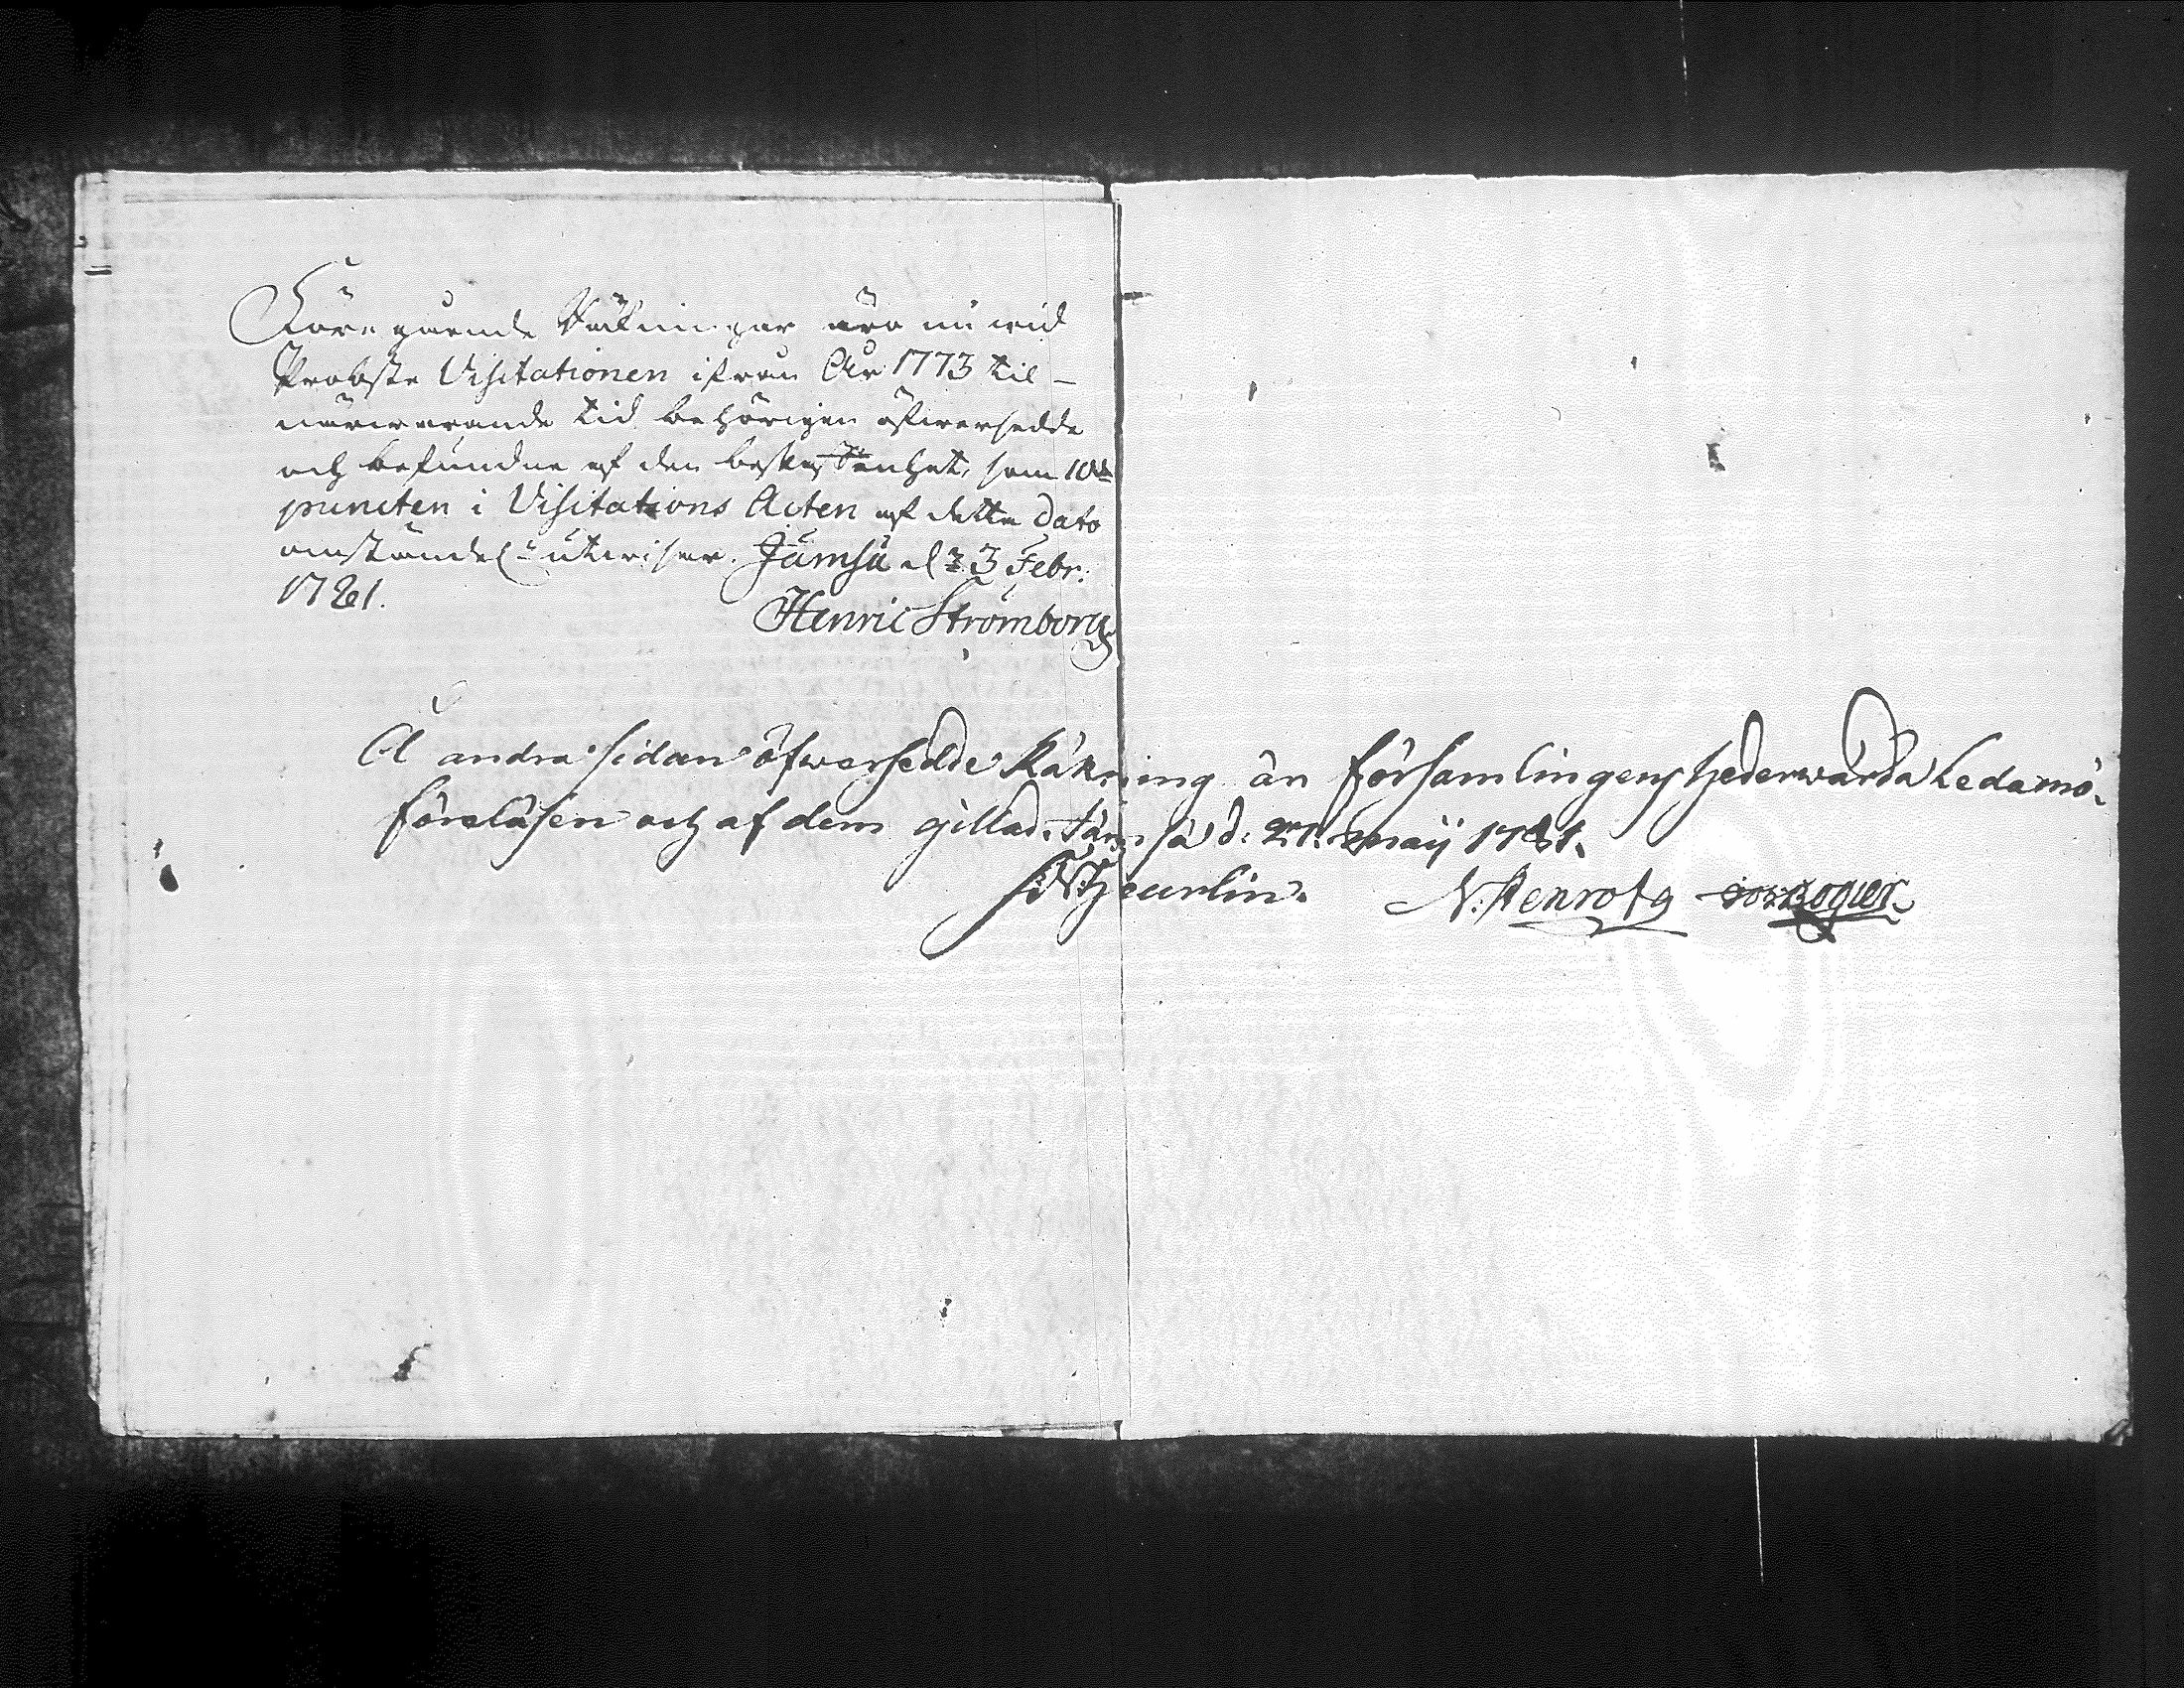 Föregående Räkningar äro nu wid
Probste Visitationen ifrån År 1773 til
närwarande tid behörigen öfwersedde
och befundne af den beskaffenhet, som 10de
puncten i Visitations Acten af detta dato
omständel. utwisar. Jämsä d. 3 Febr.
1781.
Henric Strömborg
Å andra sidan öfwersedde Räkning är församlingens hederwärda Ledamö.
föreläsen och af dem gillad. Jämsä d: 21. Maij 1781.
Heurlin. N: Stenroth